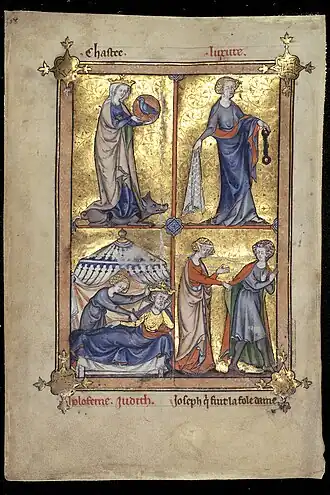 Chastee. Luxure.
Holoferne. Judith. Joseph q̃ fuit la fole dame